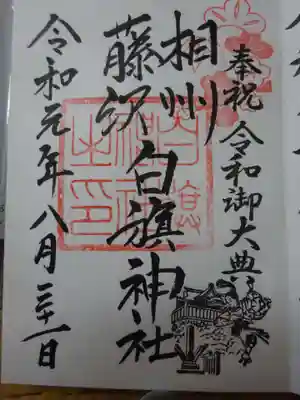 奉祝 令和御大典
相州
藤沢白旗神社
令和元年八月三十一日
白旗
神社
之印